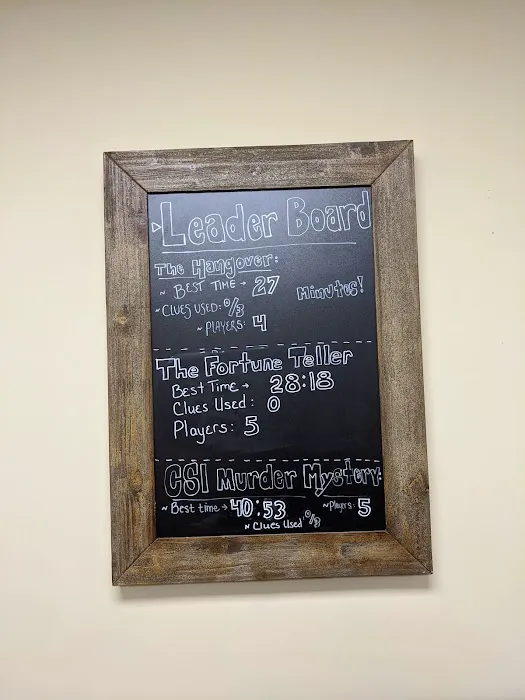 Leader Board
The Hangover:
~ BEST TIME → 27 Minutes!
~ CLUES USED: 0/3
~ PLAYERS: 4
The Fortune Teller
Best Time → 28:18
Clues Used: 0
Players: 5
CSI Murder Mystery
~ Best time → 40:53 ~ Players: 5
~ Clues Used: 0/3